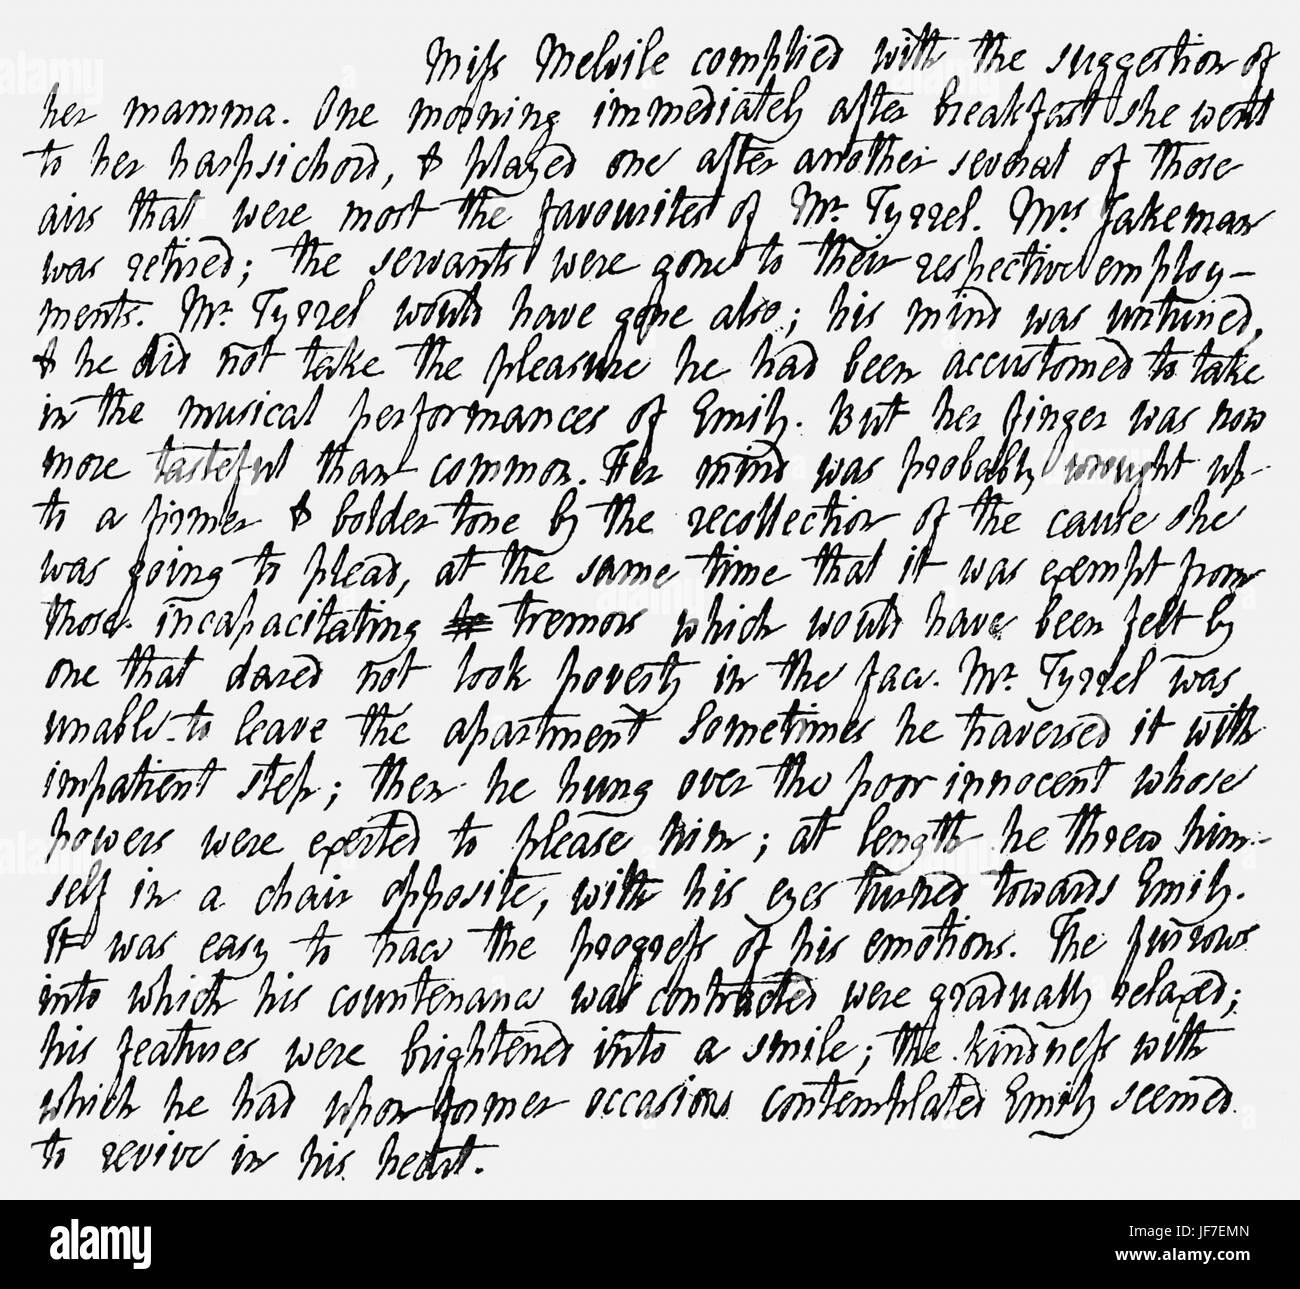 Miss Melvile complied with the suggestion of
her mamma. One morning immediately after breakfast she went
to her harpsichord, & played one after another several of those
airs that were most the favourites of Mr. Tyrrel. Mrs Jakeman
was retired; the servants were gone to their respective employ-
ments. Mr. Tyrrel would have gone also; his mind was untuned,
& he did not take the pleasure he had been accustomed to take
in the musical performances of Emily. But her finger was now
more tasteful than common. Her mind was probably wrought up
to a firmer & bolder tone by the recollection of the cause she
was going to plead, at the same time that it was exempt from
those incapacitating tremors which would have been felt by
one that dared not look poverty in the face. Mr. Tyrrel was
unable to leave the apartment Sometimes he traversed it with
impatient step; then he hung over the poor innocent whose
powers were exerted to please him; at length he threw him-
self in a chair opposite, with his eyes turned towards Emily.
It was easy to trace the progress of his emotions. The furrows
into which his countenance was contracted were gradually relaxed;
his features were brightened into a smile; the kindness with
which he had upon former occasions contemplated Emily seemed
to revive in his heart.
alamy
a
alamy stock photo
JF7EMN
www.alamy.com